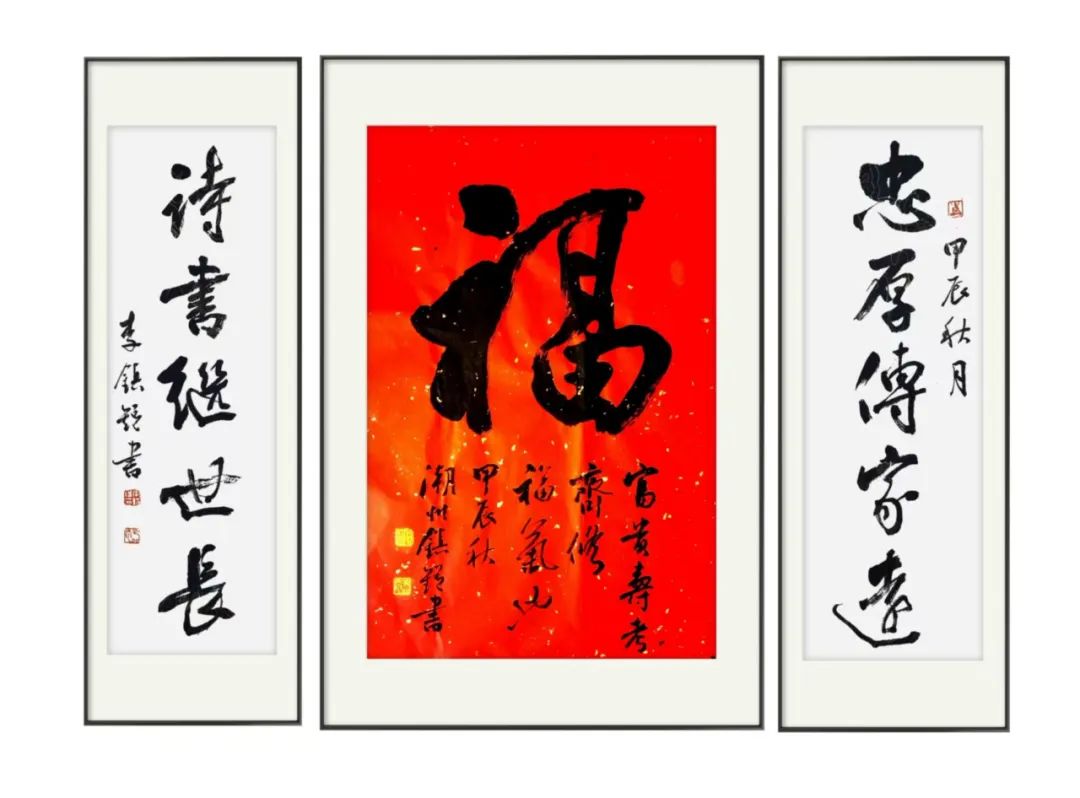 忠厚傳家遠
甲辰秋月
福
富貴壽考
齊備
福氣也
甲辰秋
潮州鎮書
诗書继世長
李鎮書